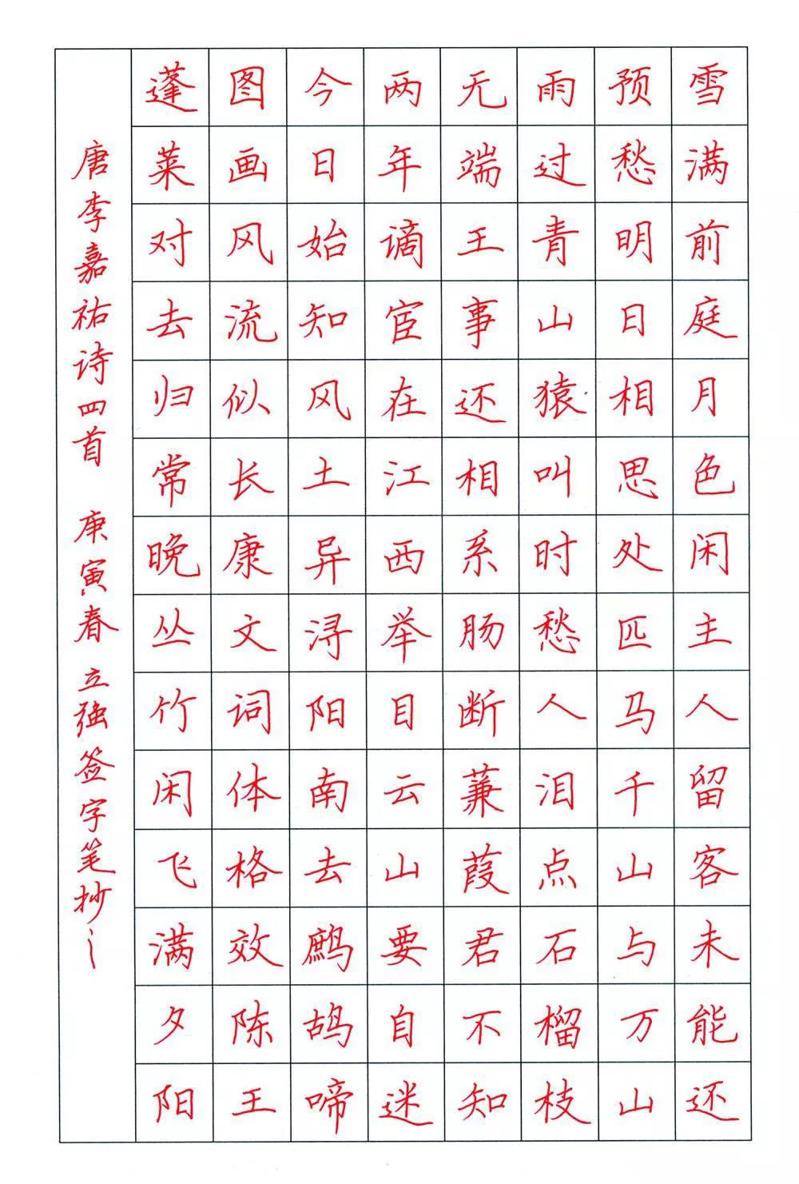 雪满前庭月色闲主人留客未能还
预愁明日相思处匹马千山与万山
雨过青山猿叫时愁人泪点石榴枝
无端王事还相系肠断蒹葭君不知
两年谪宦在江西举目云山要自迷
今日始知风土异浔阳南去鹧鸪啼
图画风流似长康文词体格效陈王
蓬莱对去归常晚丛竹闲飞满夕阳
唐李嘉祐诗四首 庚寅春立强签字笔抄之